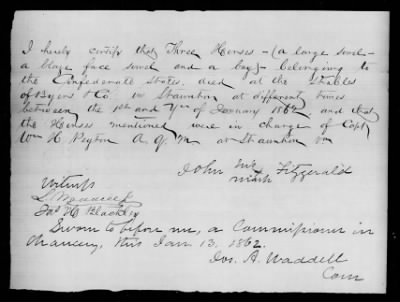 I hereby certify that Three Horses - (a large sorrel -
a blaze face sorrel and a bay) - belonging to
the Confederate States, died at the Stables
of Byers & Co. in Staunton at different times
between the 1st and 9th of January 1862, and that
the Horses mentioned were in charge of Capt
Wm H. Peyton A. Q. M. at Staunton Va
John his Fitzgerald
mark
Witness
L. Waddell
Jas H. Blackley
Sworn to before me, a Commissioner in
Chancery, this Jan 13, 1862.
Jos. A. Waddell
Com